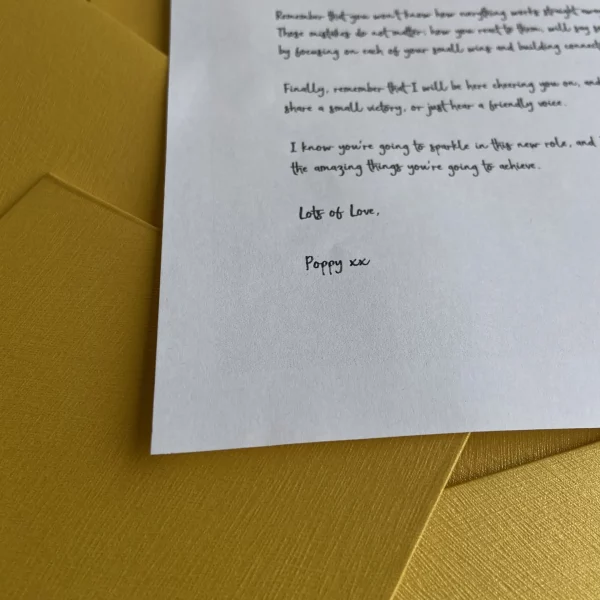 Remember that you won't know how everything works straight awa
These mistakes do not matter; how you react to them, will pay
by focusing on each of your small wins and building connect
Finally, remember that I will be here cheering you on, and
share a small victory, or just hear a friendly voice.
I know you're going to sparkle in this new role, and
the amazing things you're going to achieve.
Lots of Love,
Poppy xx